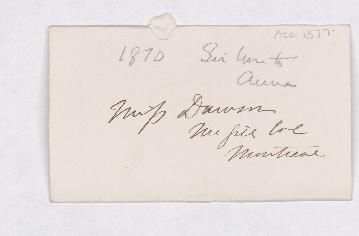 Acc 1377
1870 Sir Wm to
Anna
Miss Dawson
McGill Col
Montreal